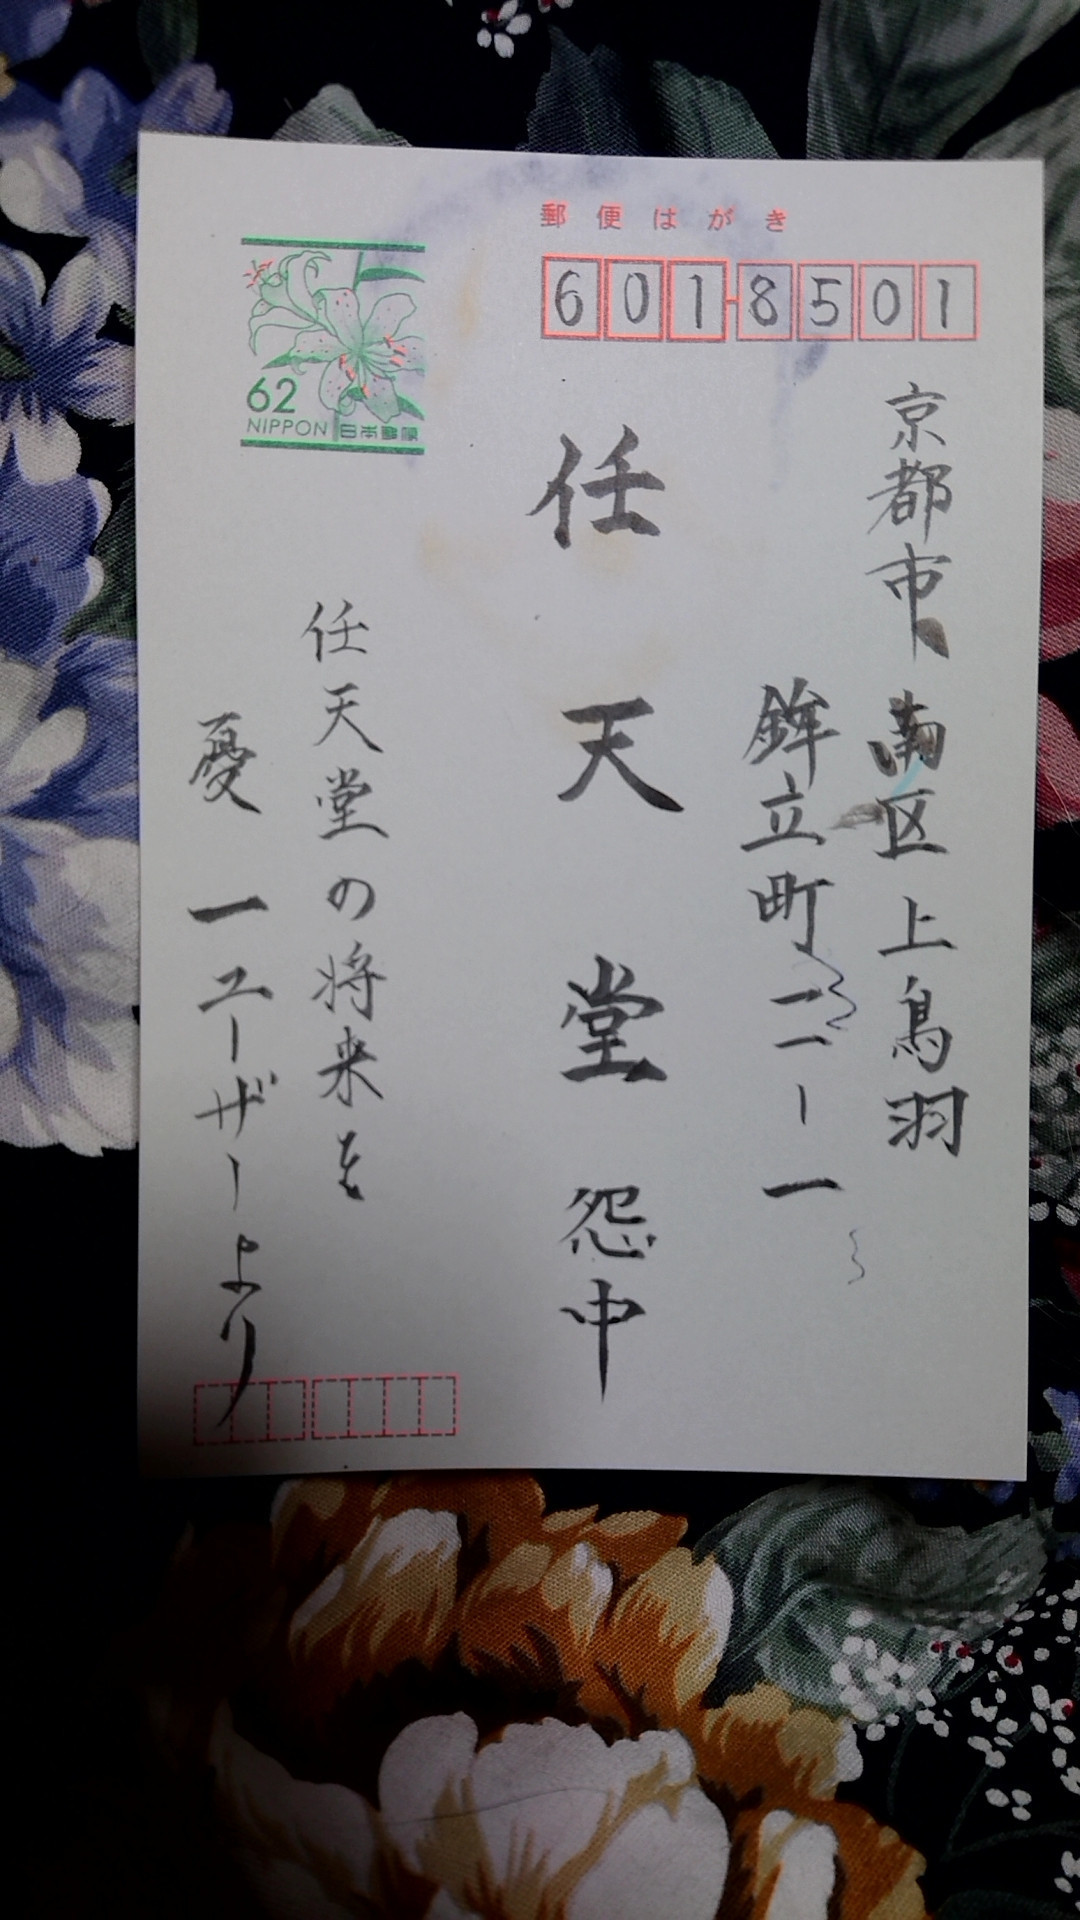 郵便はがき
6018501
62
NIPPON 日本郵便
京都市南区上鳥羽
鉾立町二ー一
任天堂 怨中
任天堂の将来を
憂 一ユーザーより